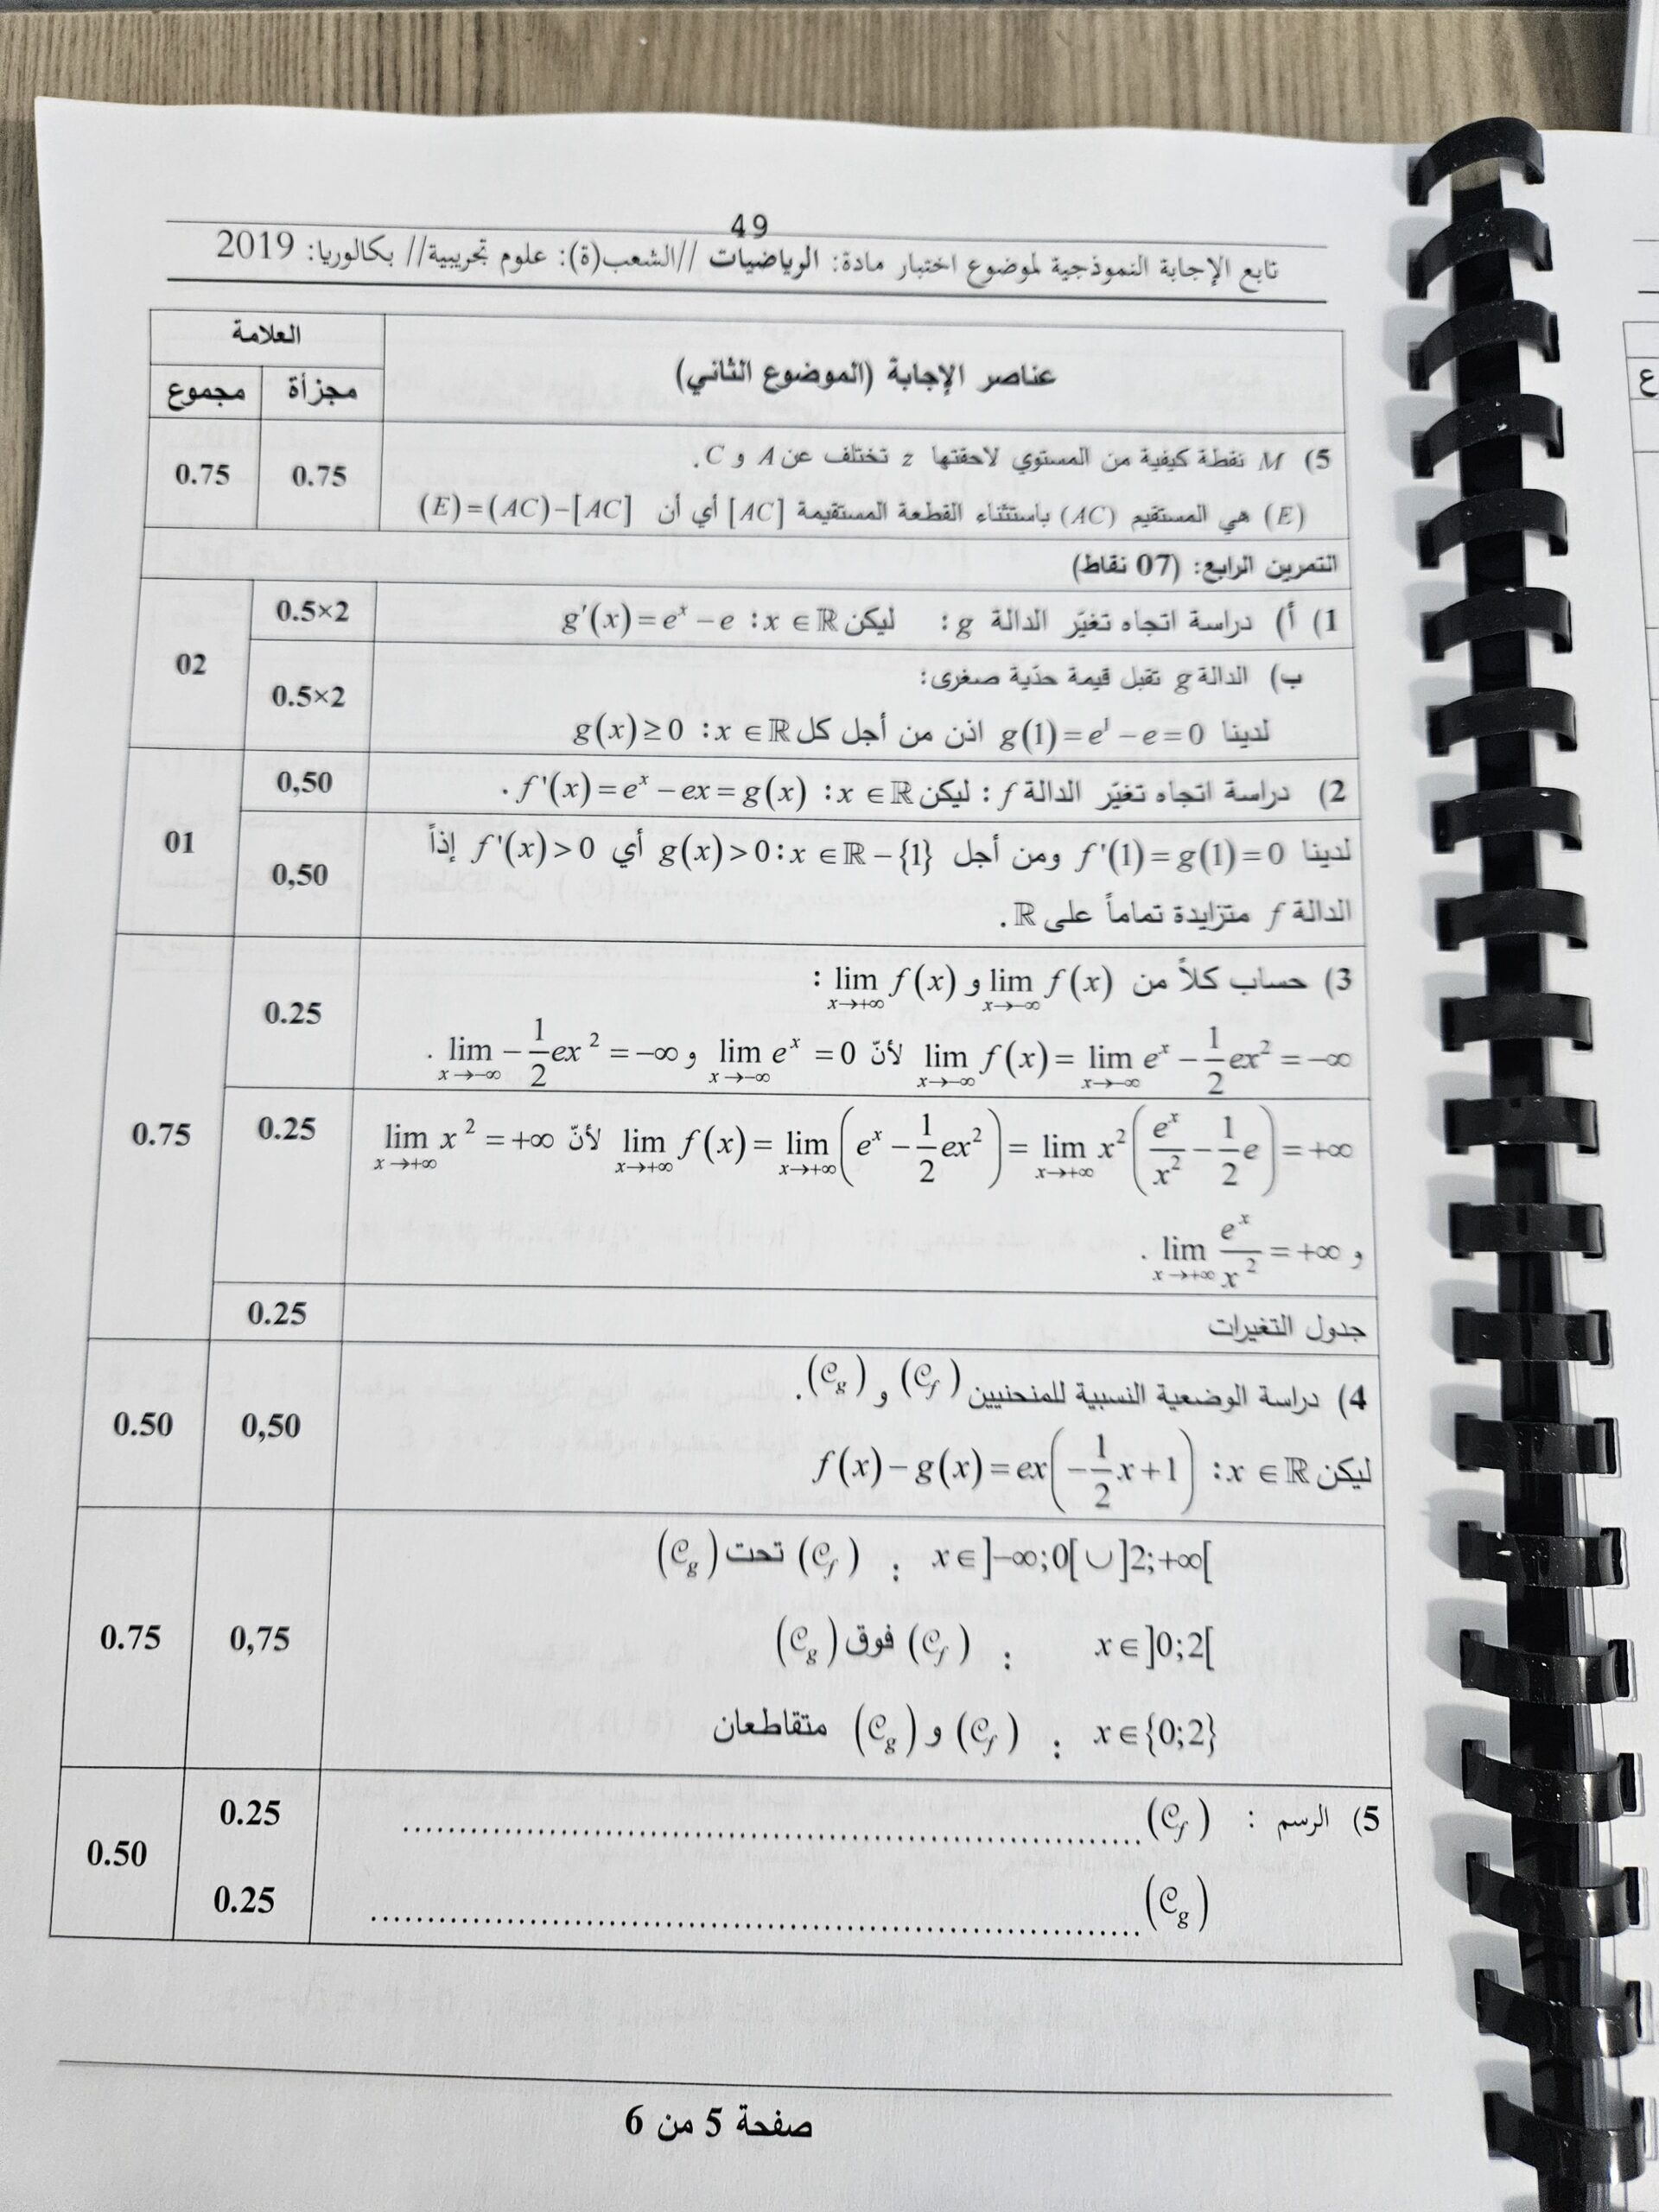 49
تابع الإجابة النموذجية لموضوع اختبار مادة: الرياضيات //الشعب(ة): علوم تجريبية// بكالوريا: 2019
عناصر الإجابة (الموضوع الثاني)
العلامة
مجزأة مجموع
5) M نقطة كيفية من المستوي لاحقتها z تختلف عن A و C.
(E) هي المستقيم (AC) باستثناء القطعة المستقيمة [AC] أي أن (E)=(AC)−[AC]
0.75 0.75
التمرين الرابع: (07 نقاط)
1) أ) دراسة اتجاه تغيّر الدالة g : ليكن x ∈ ℝ: g′(x)=eˣ−e
0.5×2
ب) الدالة g تقبل قيمة حدّية صغرى:
لدينا g(1)=e¹−e=0 اذن من أجل كل x ∈ ℝ: g(x)≥0
0.5×2
02
2) دراسة اتجاه تغيّر الدالة f : ليكن x ∈ ℝ: f'(x)=eˣ−ex=g(x) .
0,50
لدينا f'(1)=g(1)=0 ومن أجل x ∈ ℝ−{1}: g(x)>0 أي f'(x)>0 إذاً
الدالة f متزايدة تماماً على ℝ.
0,50
01
3) حساب كلاً من lim x→−∞ f(x) و lim x→+∞ f(x) :
lim x→−∞ f(x) = lim x→−∞ eˣ − 1/2 ex² = −∞ لأنّ lim x→−∞ eˣ = 0 و lim x→−∞ −1/2 ex² = −∞ .
0.25
lim x→+∞ f(x) = lim x→+∞ (eˣ − 1/2 ex²) = lim x→+∞ x² (eˣ/x² − 1/2 e) = +∞ لأنّ lim x→+∞ x² = +∞
و lim x→+∞ eˣ/x² = +∞ .
0.25
0.75
جدول التغيرات
0.25
4) دراسة الوضعية النسبية للمنحنيين (𝒞f) و (𝒞g).
ليكن x ∈ ℝ: f(x)−g(x)=ex(−1/2 x+1)
0,50 0.50
x∈]−∞;0[∪]2;+∞[ : (𝒞f) تحت (𝒞g)
x∈]0;2[ : (𝒞f) فوق (𝒞g)
x∈{0;2} : (𝒞f) و (𝒞g) متقاطعان
0,75 0.75
5) الرسم : (𝒞f) ..........
0.25
(𝒞g) ..........
0.25
0.50
صفحة 5 من 6